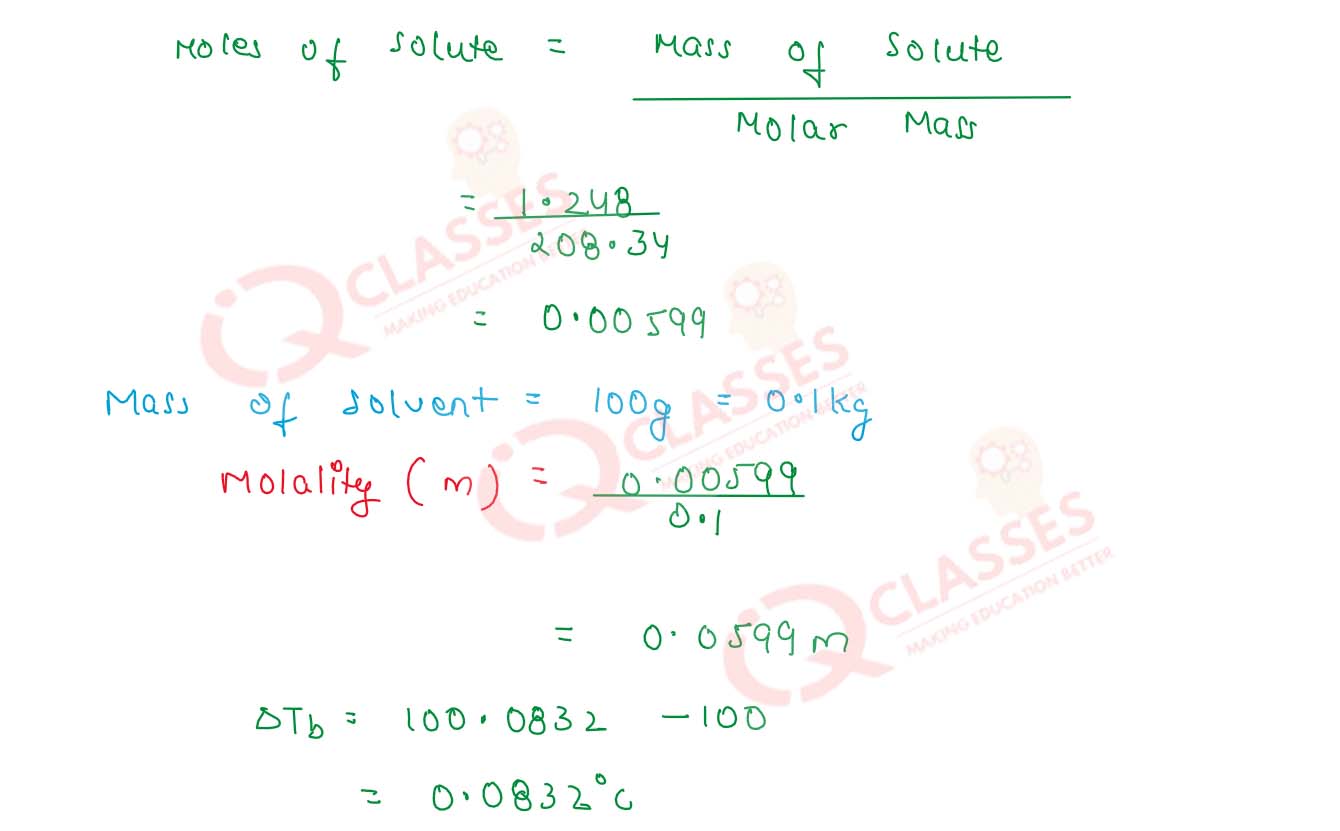 Moles of solute = Mass of Solute
Molar Mass
= 1.248
208.34
= 0.00599
Mass of solvent = 100g = 0.1kg
Molality (m) = 0.00599
0.1
= 0.0599 m
ΔTb = 100.0832 - 100
= 0.0832°C
iQ CLASSES
MAKING EDUCATION BETTER
iQ CLASSES
MAKING EDUCATION BETTER
iQ CLASSES
MAKING EDUCATION BETTER